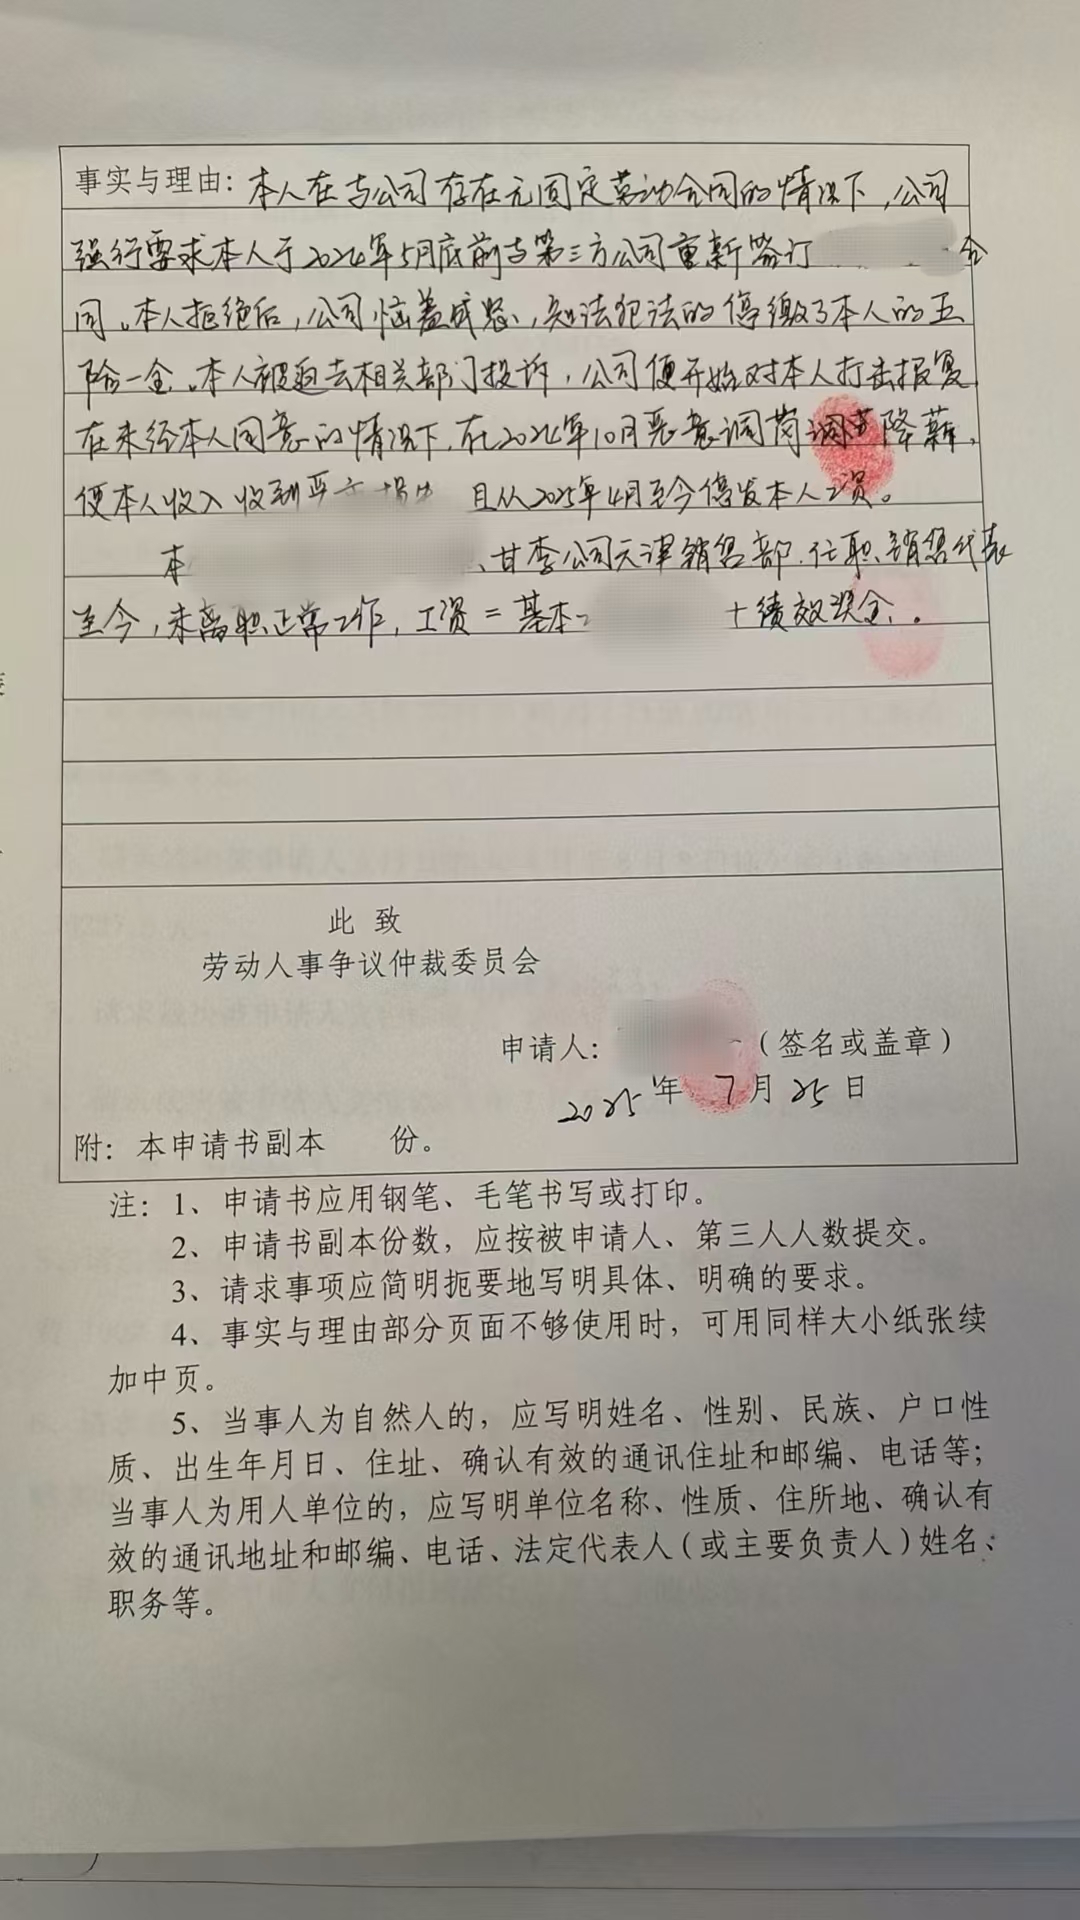 事实与理由：本人在与公司存在无固定劳动合同的情况下，公司
强行要求本人于2024年5月底前与第三方公司重新签订 合
同。本人拒绝后，公司恼羞成怒，知法犯法的停缴了本人的五
险一金。本人被迫去相关部门投诉，公司便开始对本人打击报复，
在未经本人同意的情况下，在2024年10月恶意调岗 降薪，
使本人收入收到严重损失 且从2025年4月至今停发本人工资。
本 、甘李公司天津销售部，任职销售代表
至今，未离职正常工作，工资=基本 +绩效奖金。
此 致
劳动人事争议仲裁委员会
申请人： （签名或盖章）
2025年 7月25日
附：本申请书副本 份。
注：1、申请书应用钢笔、毛笔书写或打印。
2、申请书副本份数，应按被申请人、第三人人数提交。
3、请求事项应简明扼要地写明具体、明确的要求。
4、事实与理由部分页面不够使用时，可用同样大小纸张续
加中页。
5、当事人为自然人的，应写明姓名、性别、民族、户口性
质、出生年月日、住址、确认有效的通讯住址和邮编、电话等；
当事人为用人单位的，应写明单位名称、性质、住所地、确认有
效的通讯地址和邮编、电话、法定代表人（或主要负责人）姓名、
职务等。